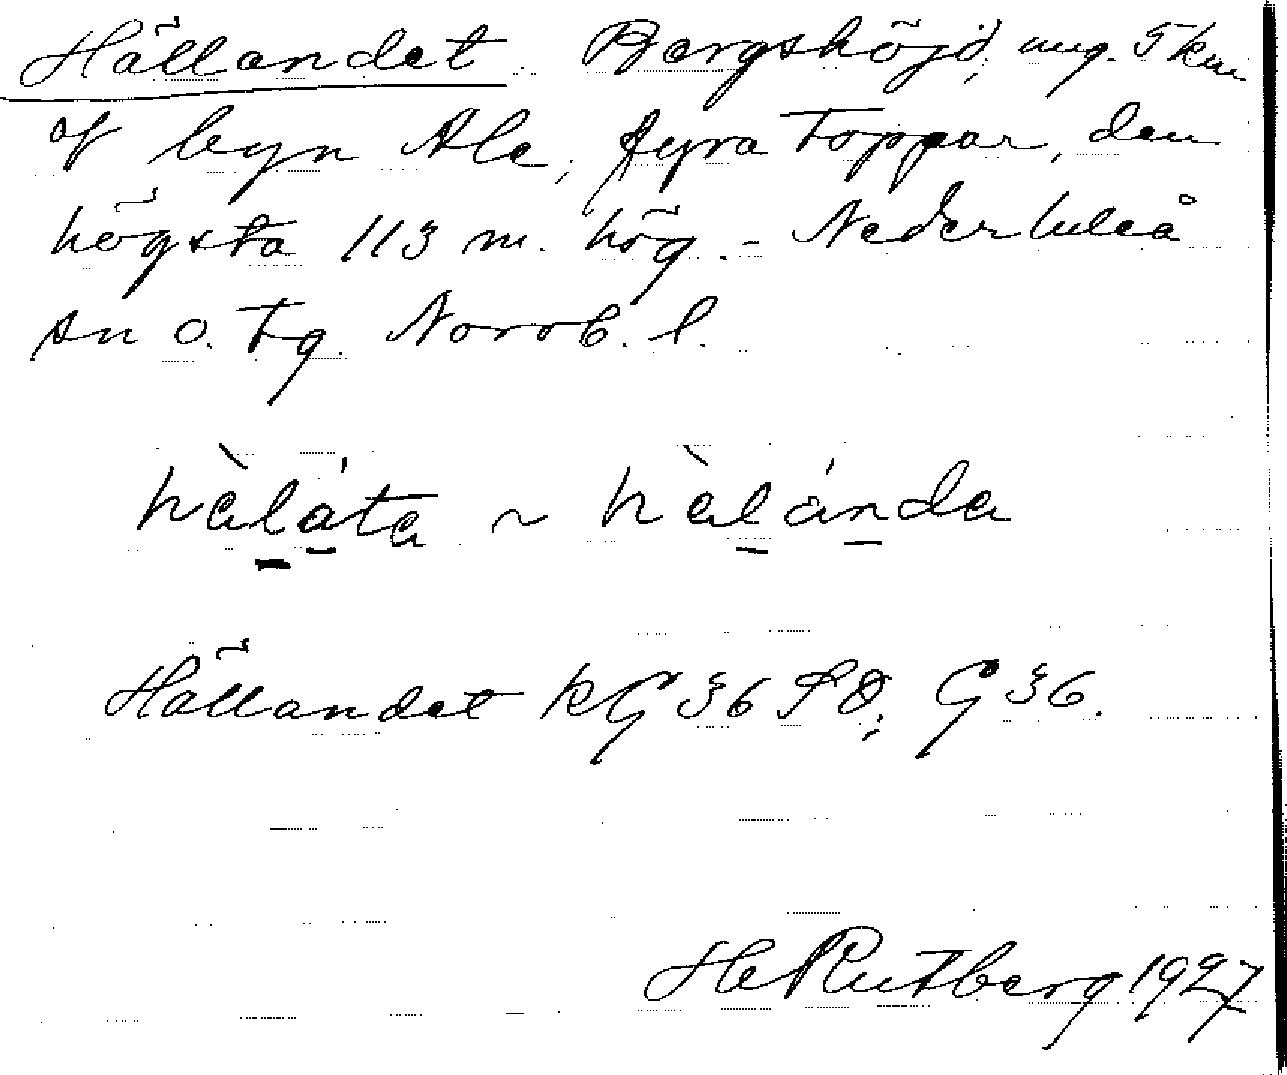 Hällandet. Bergshöjd, ung. 5 km
af byn Ale, fyra toppar, den
högsta 113 m. hög. - Nederluleå
sn o. tg. Norrb. l.
hàláta ~ hàlánda
Hällandet kG 36 SO; G 36.
HeRutberg 1927